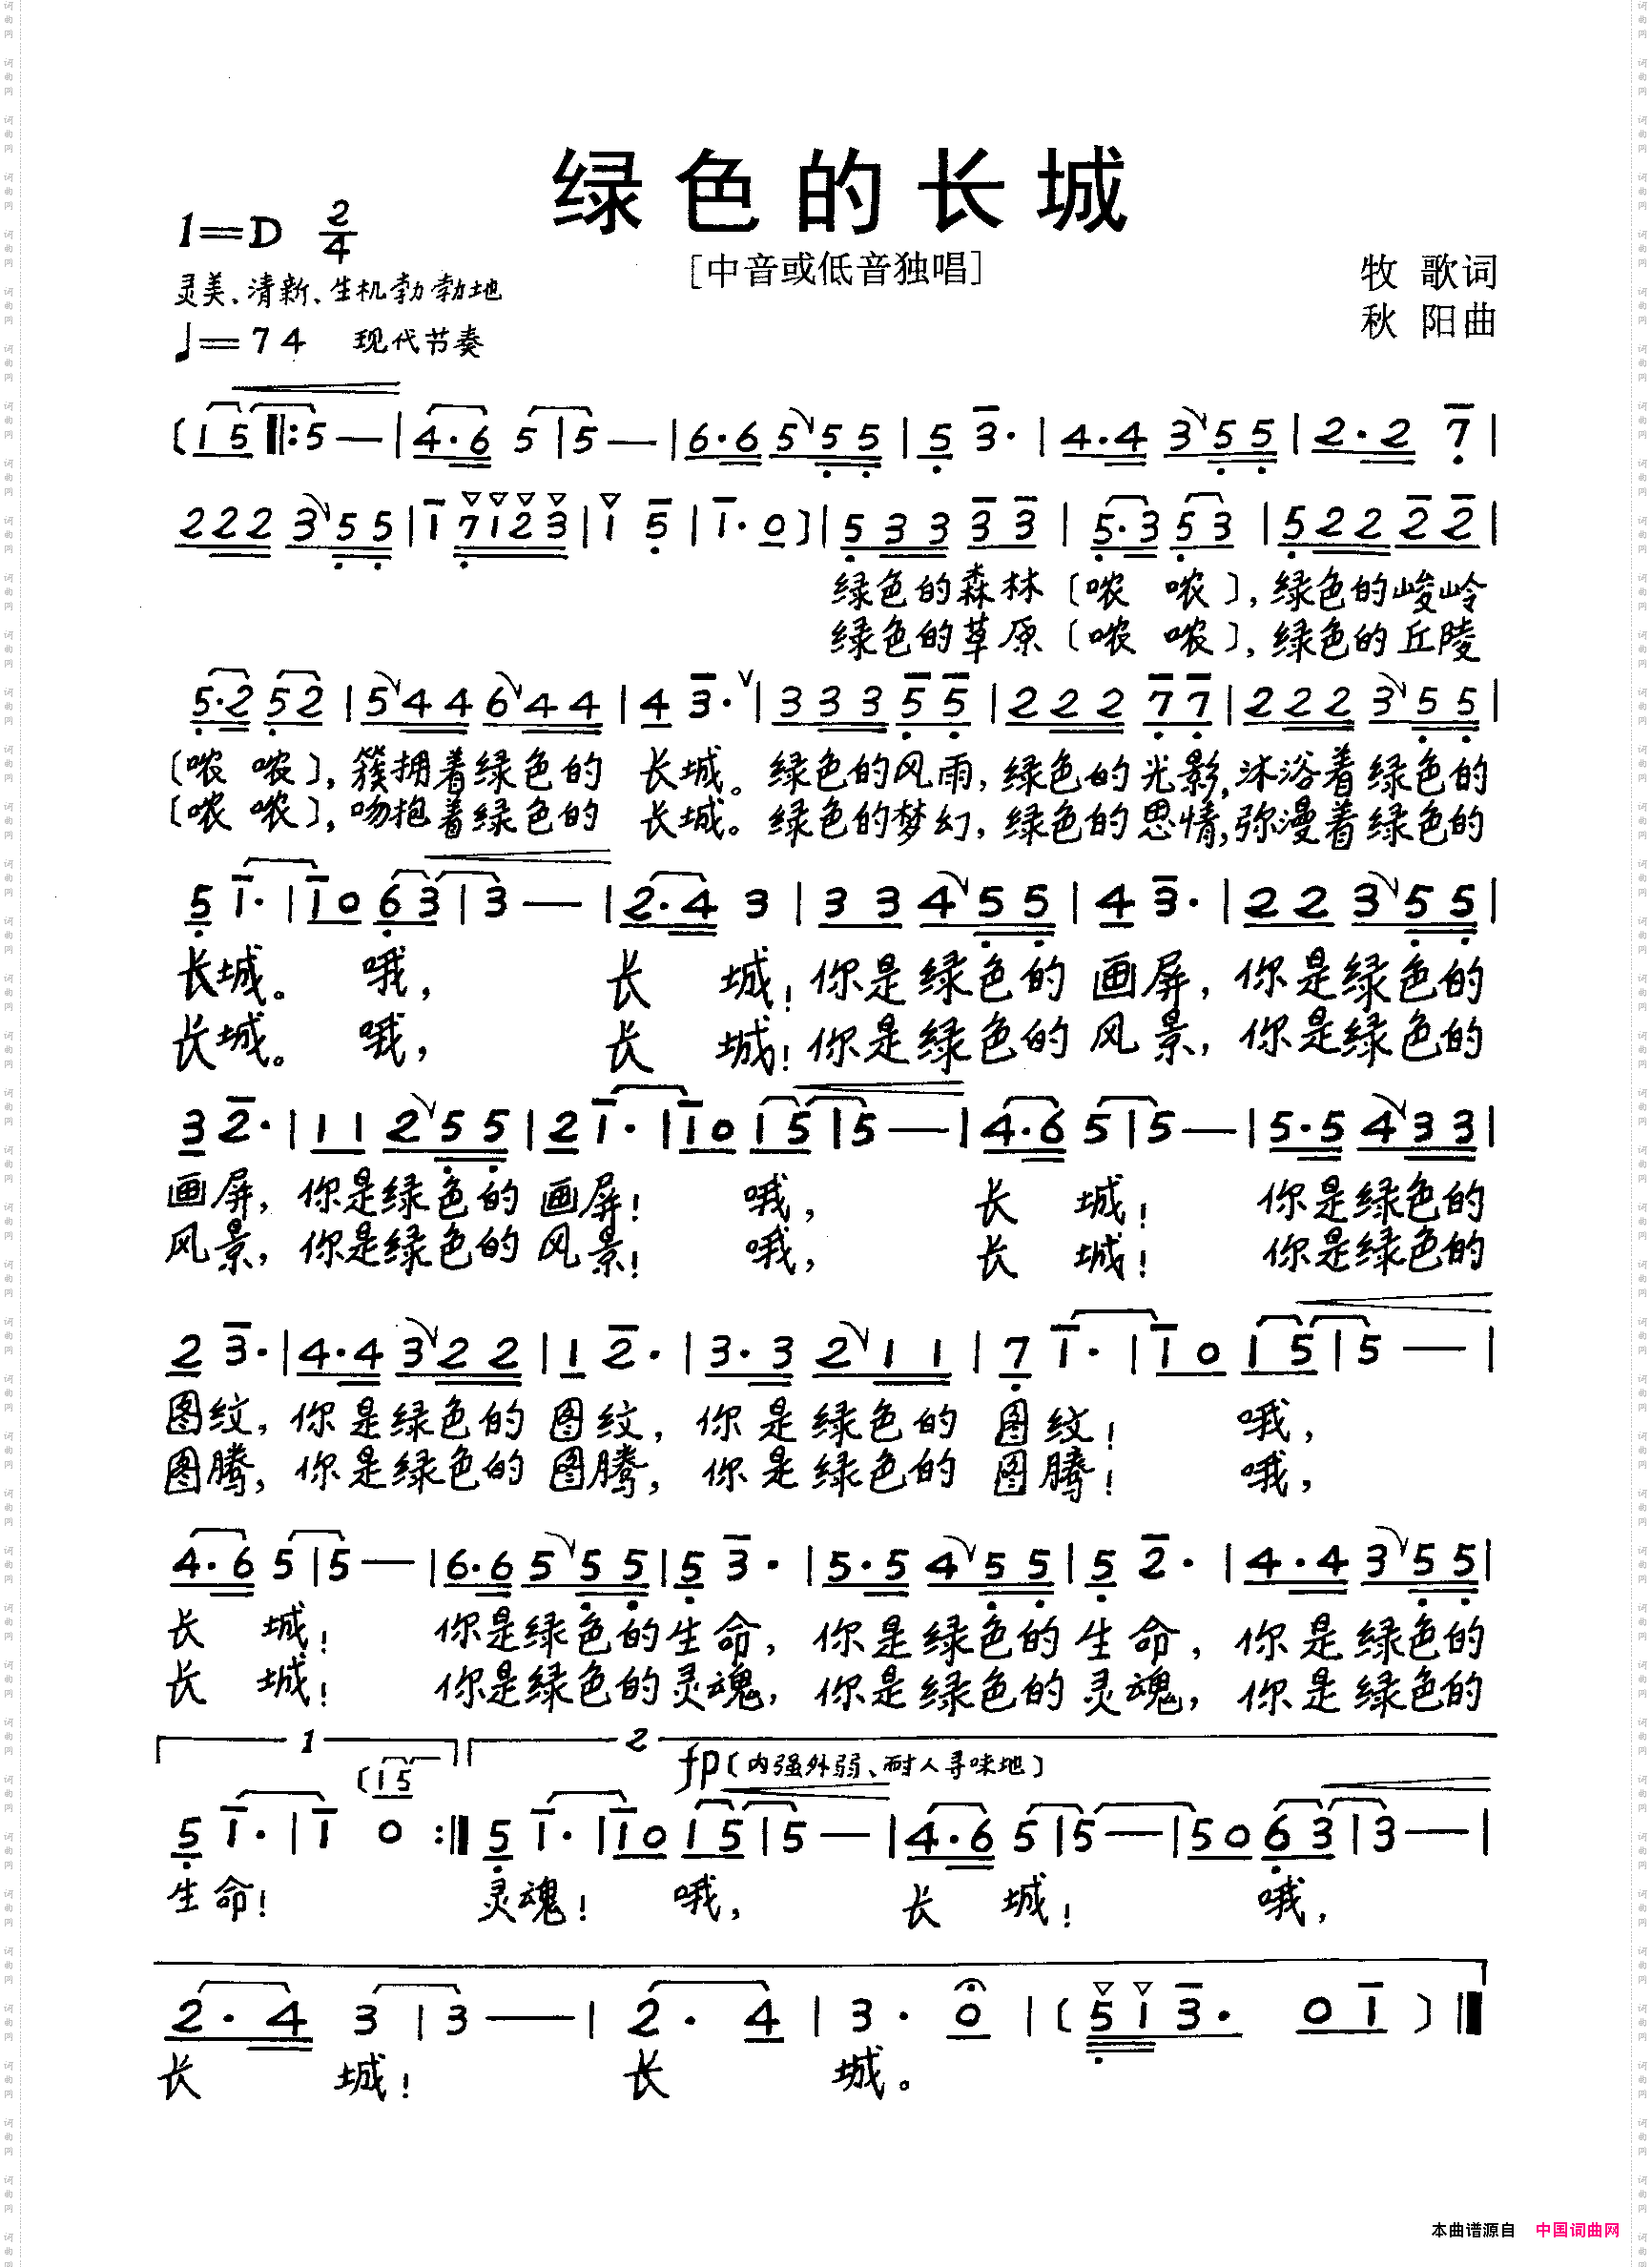 绿色的长城
1=D 2/4
[中音或低音独唱]
牧 歌词
灵美、清新、生机勃勃地
秋 阳曲
♩=74 现代节奏
(1 5 ‖: 5 — | 4·6 5 | 5 — | 6·6 5 5 5 | 5 3· | 4·4 3 5 5 | 2·2 7 |
2 2 2 3 5 5 | 1 7 1 2 3 | 1 5 | 1· 0 ) | 5 3 3 3 3 | 5·3 5 3 | 5 2 2 2 2 |
绿色的森林(哝 哝),绿色的峻岭
绿色的草原(哝 哝),绿色的丘陵
5·2 5 2 | 5 4 4 6 4 4 | 4 3· | 3 3 3 5 5 | 2 2 2 7 7 | 2 2 2 3 5 5 |
(哝 哝),簇拥着绿色的 长城。绿色的风雨,绿色的光影,沐浴着绿色的
(哝 哝),吻抱着绿色的 长城。绿色的梦幻,绿色的思情,弥漫着绿色的
5 1· | 1 0 6 3 | 3 — | 2·4 3 | 3 3 4 5 5 | 4 3· | 2 2 3 5 5 |
长城。 哦, 长 城!你是绿色的 画屏,你是绿色的
长城。 哦, 长 城!你是绿色的 风景,你是绿色的
3 2· | 1 1 2 5 5 | 2 1· | 1 0 1 5 | 5 — | 4·6 5 | 5 — | 5·5 4 3 3 |
画屏,你是绿色的 画屏! 哦, 长 城! 你是绿色的
风景,你是绿色的 风景! 哦, 长 城! 你是绿色的
2 3· | 4·4 3 2 2 | 1 2· | 3·3 2 1 1 | 7 1· | 1 0 1 5 | 5 — |
图纹,你是绿色的 图纹,你是绿色的 图纹! 哦,
图腾,你是绿色的 图腾,你是绿色的 图腾! 哦,
4·6 5 | 5 — | 6·6 5 5 5 | 5 3· | 5·5 4 5 5 | 5 2· | 4·4 3 5 5 |
长 城! 你是绿色的生命,你是绿色的生命,你是绿色的
长 城! 你是绿色的灵魂,你是绿色的灵魂,你是绿色的
1 2
fp(内强外弱、耐人寻味地)
(1 5
5 1· | 1 0 :‖ 5 1· | 1 0 1 5 | 5 — | 4·6 5 | 5 — | 5 0 6 3 | 3 — |
生命! 灵魂! 哦, 长 城! 哦,
2·4 3 | 3 — | 2· 4 | 3· 0 | (5 1 3· 0 1) ‖
长 城! 长 城。
本曲谱源自 中国词曲网